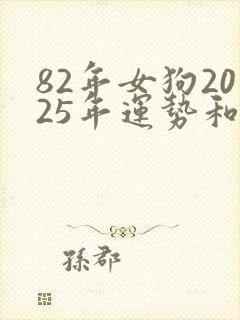 82年女狗20
25年運勢和
孫郡